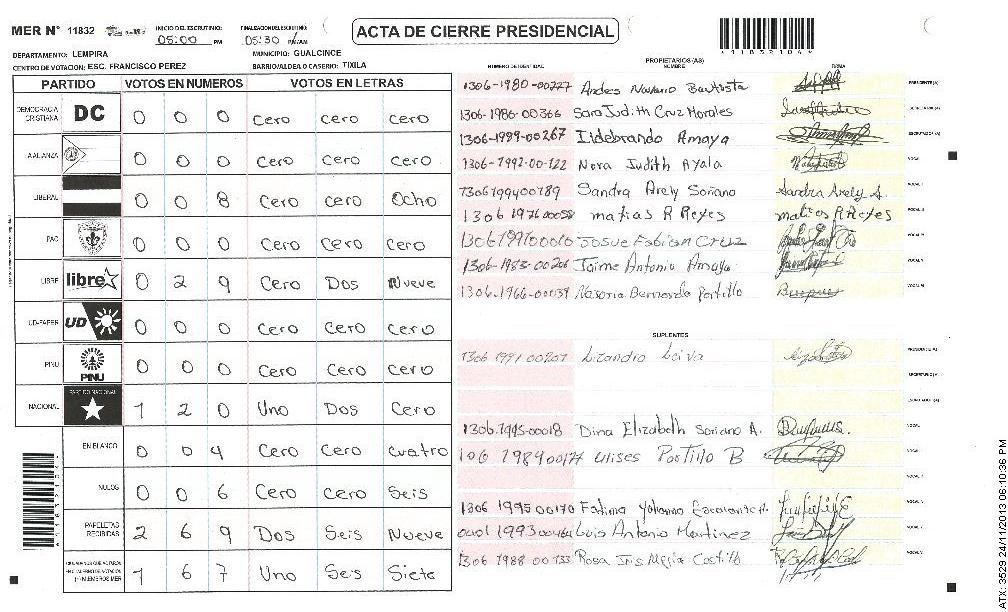 MER N° 11832 INICIO DEL ESCRUTINIO: 05:00 PM FINALIZACION DEL ESCRUTINIO: 05:30 PM/AM
ACTA DE CIERRE PRESIDENCIAL
11832104
DEPARTAMENTO: LEMPIRA MUNICIPIO: GUALCINCE
CENTRO DE VOTACION: ESC. FRANCISCO PEREZ BARRIO/ALDEA O CASERIO: TIXILA
PARTIDO VOTOS EN NUMEROS VOTOS EN LETRAS
DEMOCRACIA CRISTIANA DC 0 0 0 Cero cero cero
LA ALIANZA 0 0 0 Cero cero cero
LIBERAL 0 0 8 Cero cero Ocho
PAC 0 0 0 Cero Cero Cero
LIBRE libre 0 2 9 Cero Dos Nueve
UD-FAPER UD 0 0 0 Cero Cero Cero
PINU PINU 0 0 0 Cero Cero Cero
NACIONAL PARTIDO NACIONAL 1 2 0 Uno Dos Cero
EN BLANCO 0 0 4 Cero Cero cuatro
NULOS 0 0 6 Cero Cero Seis
PAPELETAS RECIBIDAS 2 6 9 Dos Seis Nueve
1 6 7 Uno Seis Siete
NUMERO DE IDENTIDAD PROPIETARIOS (AS) NOMBRE FIRMA
1306-1980-00777 Andres Nasario Bautista PRESIDENTE(A)
1306-1986-00366 Sara Judith Cruz Morales SECRETARIO(A)
1306-1999-00267 Ildebrando Amaya ESCRUTADOR(A)
1306-1992-00-122 Nora Judith Ayala VOCAL
1306199400189 Sandra Arely Soriano Sandra Arely S.
1306 197600058 matias R Reyes matias R Reyes
1306199100010 Josue Fabian Cruz
1306-1983-00206 Jaime Antonio Amaya
1306-1966-00039 Nasario Bernardo Portillo
SUPLENTES
1306 1991 00207 Lizandro Leiva PRESIDENTE(A)
SECRETARIO(A)
ESCRUTADOR(A)
1306-1995-00018 Dina Elizabeth Soriano A.
106 1989 00177 Ulises Portillo B
1306 1995 00170 Fatima Yohanna
0401 1993 00464 Luis Antonio Martinez
1306 1988 00133 Rosa Iris Mejia Castillo
ATX: 3529 24/11/2013 06:10:36 PM